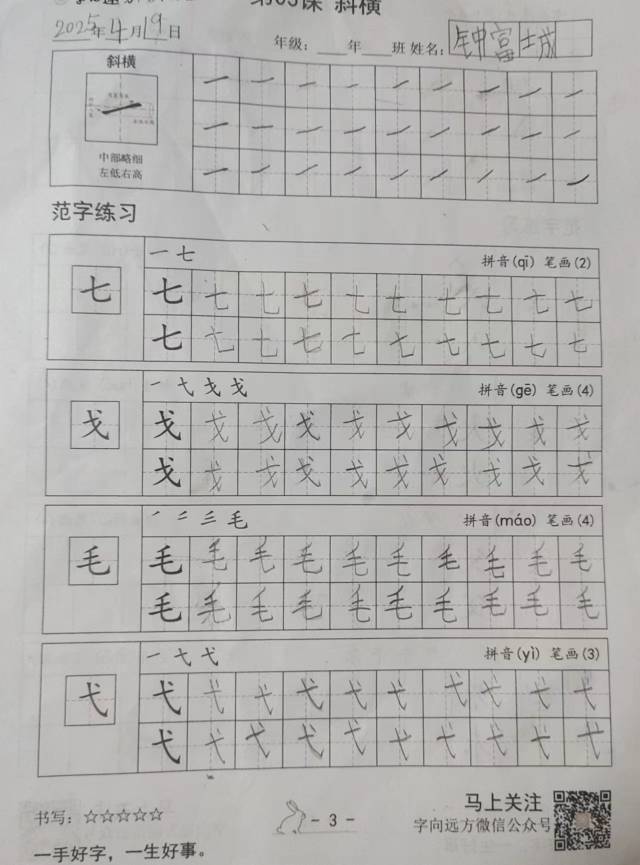 第03课 斜横
2025年4月19日
年级：____年____班 姓名：钟富城
斜横
中部略细
左低右高
范字练习
一 七 拼音(qī) 笔画(2)
七 七 七 七 七 七 七 七 七 七 七
七 七 七 七 七 七 七 七 七 七
戈 拼音(gē) 笔画(4)
戈 戈 戈 戈 戈 戈 戈 戈 戈 戈 戈
戈 戈 戈 戈 戈 戈 戈 戈 戈 戈
毛 拼音(máo) 笔画(4)
毛 毛 毛 毛 毛 毛 毛 毛 毛 毛 毛
毛 毛 毛 毛 毛 毛 毛 毛 毛 毛
弋 拼音(yì) 笔画(3)
弋 弋 弋 弋 弋 弋 弋 弋 弋 弋 弋
弋 弋 弋 弋 弋 弋 弋 弋 弋 弋
书写：☆☆☆☆☆
- 3 -
马上关注
字向远方微信公众号
一手好字，一生好事。